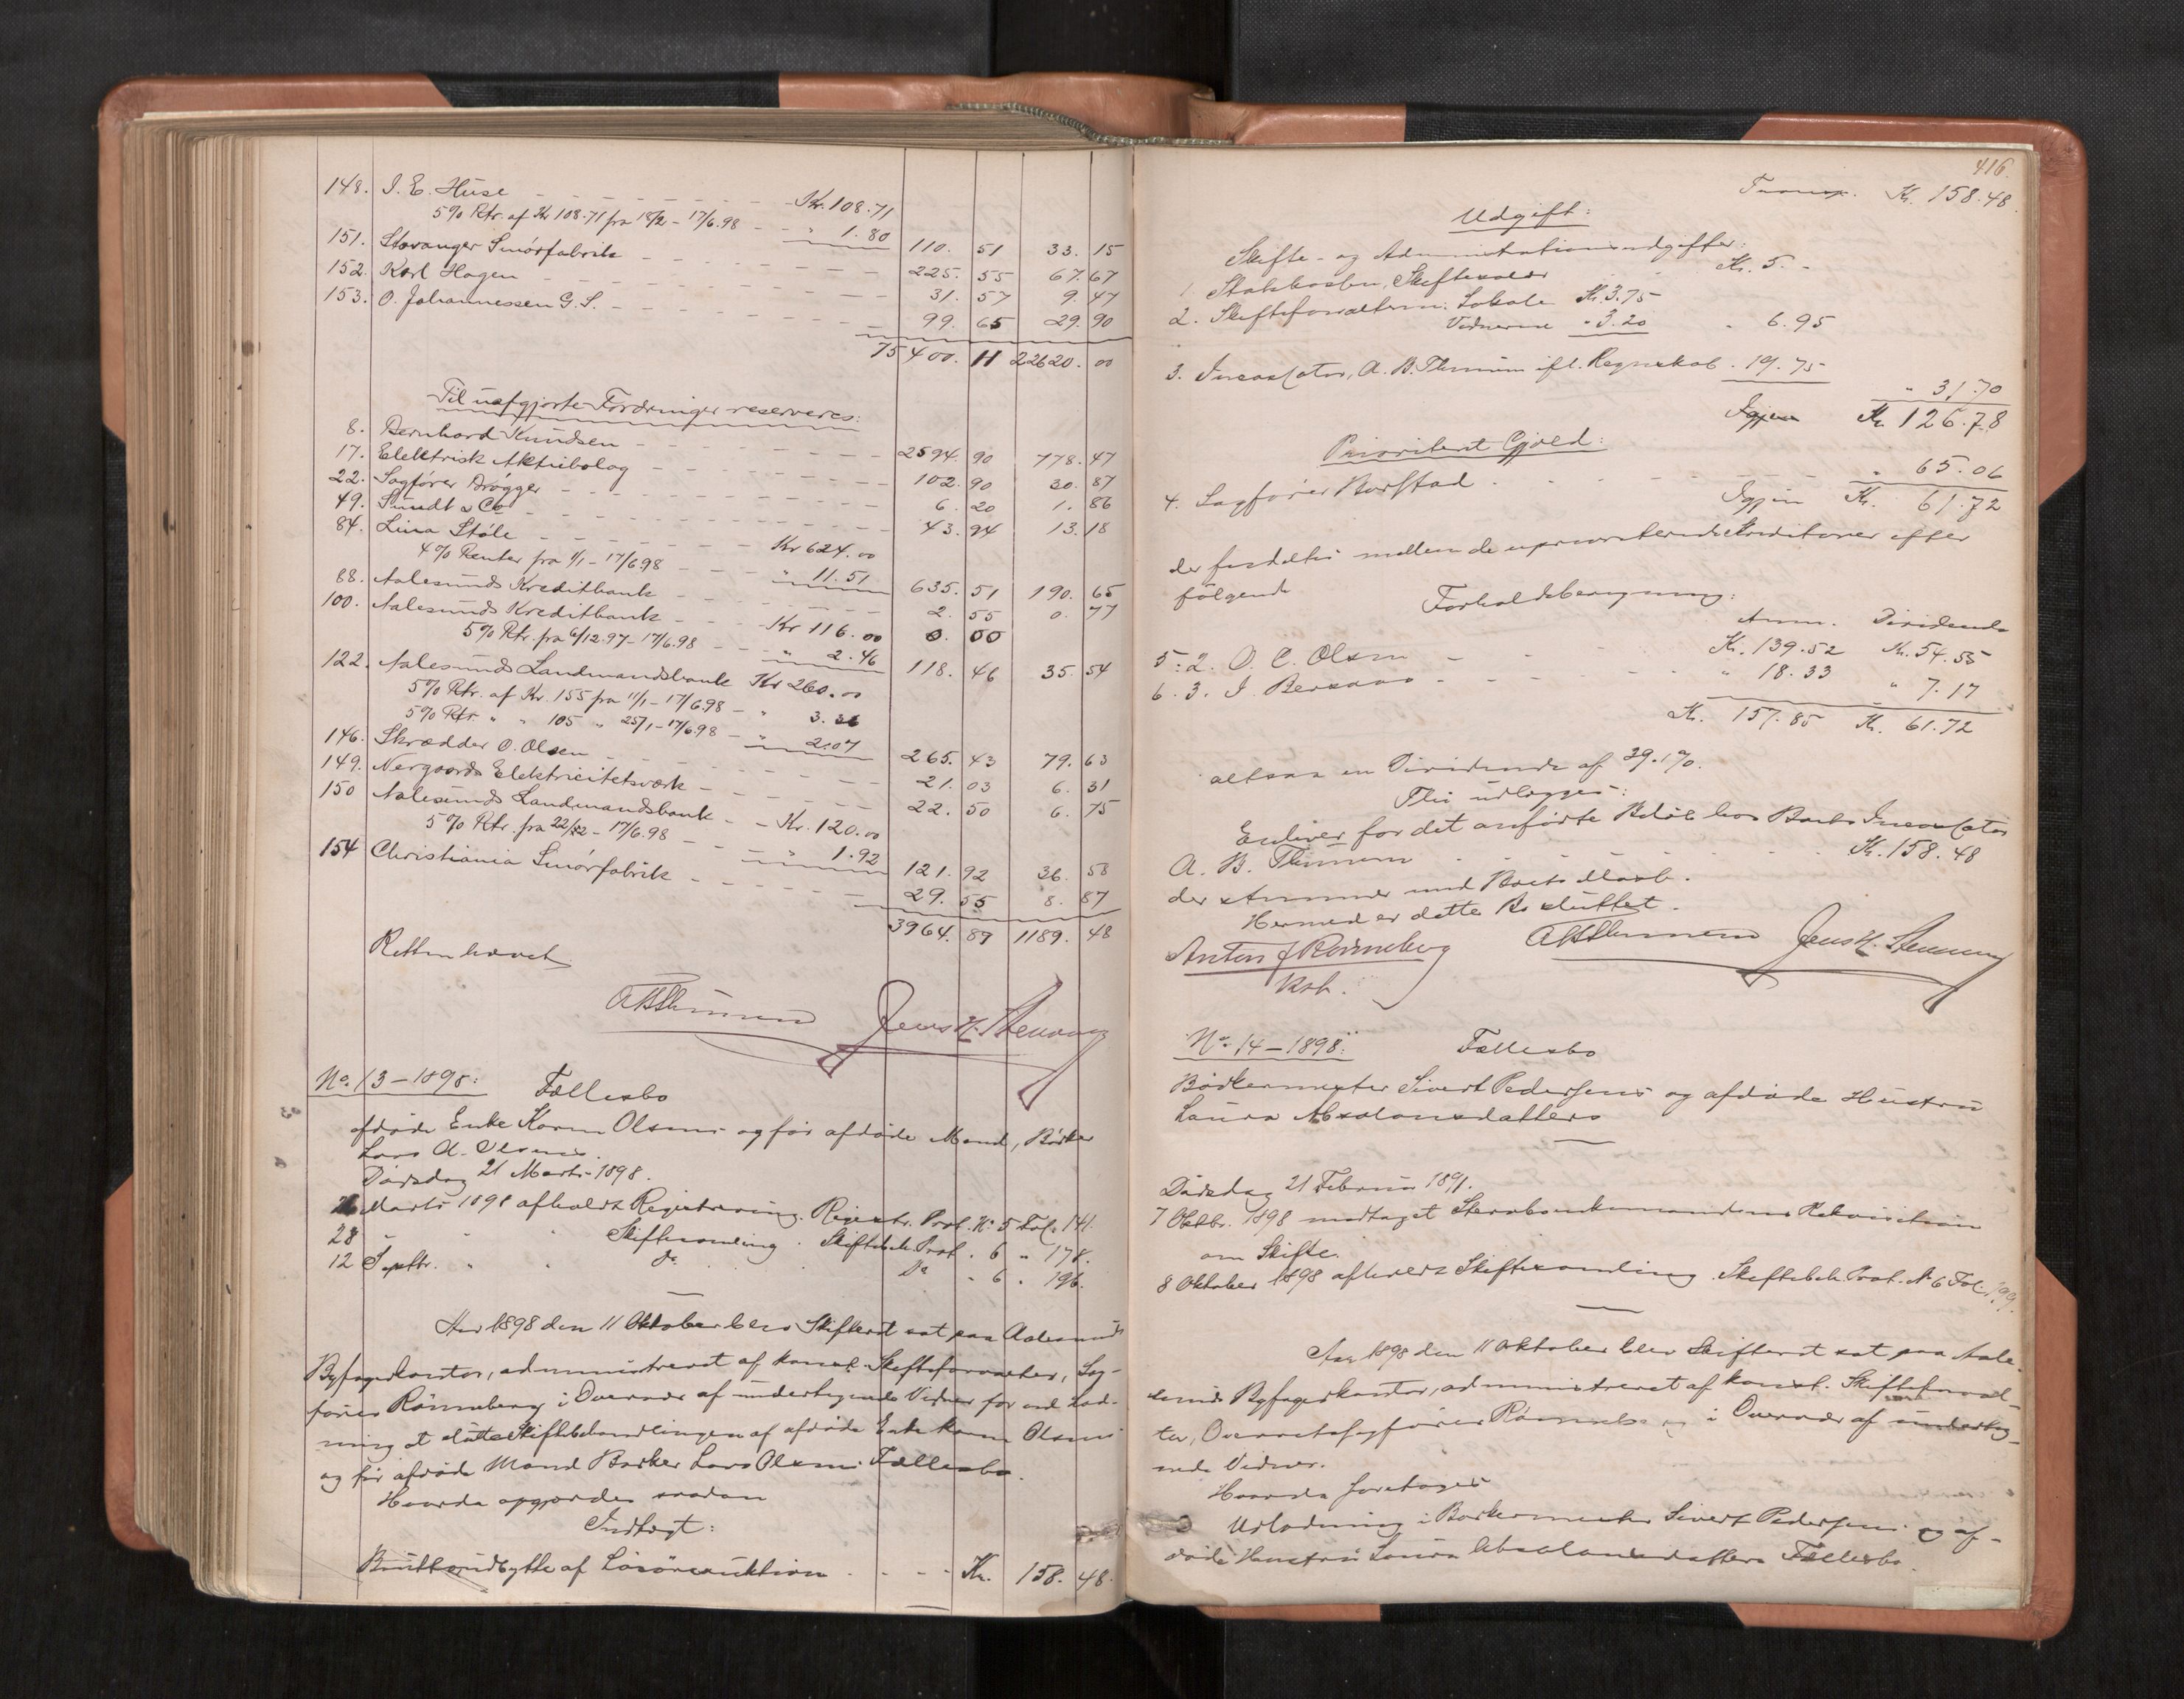 148. I. E. Huse - - - - - Kr. 108.71
5% Rtr. af Kr 108.71 fra 18/2 - 17/6.98 - - " 1.80 110. 51 33. 15
151. Stavanger Smørfabrik - - - - - 225. 55 67. 67
152. Karl Hagen - - - - - 31. 57 9. 47
153. O. Johannessen G. S. - - - - - 99. 65 29. 90
75400. 11 22620. 00
Til uafgjorte Fordringer reserveres:
8. Bernhard Knudsen - - - - - 2594. 90 778. 47
17. Elektrisk Aktiebolag - - - - - 102. 90 30. 87
22. Sagfører Brøgger - - - - - 6. 20 1. 86
49. Sundt & Co - - - - - 43. 94 13. 18
84. Lina Støle - - - - - Kr 624.00
4% Renter fra 1/1 - 17/6.98 - - " 11.51 635. 51 190. 65
88. Aalesunds Kreditbank - - - - - 2. 55 0. 77
100. Aalesunds Kreditbank - - - Kr 116.00 0. 00
5% Rtr. fra 6/12.97 - 17/6.98 - - " 2.46 118. 46 35. 54
122. Aalesunds Landmandsbank Kr 260.00
5% Rtr. af Kr. 155 fra 11/1 - 17/6.98 - " 3.36
5% Rtr " " 105 " 25/1 - 17/6.98 - " 2.07 265. 43 79. 63
146. Skrædder O. Olsen - - - - - 21. 03 6. 31
149. Nergaards Elektricitetsværk - - - - 22. 50 6. 75
150 Aalesunds Landmandsbank - - Kr. 120.00
5% Rtr. fra 22/2 - 17/6.98 - - " 1.92 121. 92 36. 58
154 Christiania Smørfabrik - - - - - 29. 55 8. 87
3964. 89 1189. 48
Retten hævet
No. 13 - 1898: Fællesbo
afdøde Enke Karen Olsens og før afdøde Mand, Bødker
Lars A. Olsens.
Dødsdag 21 Marts 1898.
Marts 1898 afholdt Registrering. Registr. Prot. No 5 Fol. 141.
28 " " Skiftesamling. Skiftebeh. Prot. " 6 " 178.
12 Septbr. " " do. Do " 6 " 196.
Aar 1898 den 11 Oktober blev Skifteret sat paa Aalesunds
Byfogedkontor, administreret af konst. Skifteforvalter, Sag-
fører Rönneberg i Overvær af undertegnede Vidner for ved Lod-
ning at slutte Skiftebehandlingen af afdøde Enke Karen Olsens
og før afdøde Mand Bødker Lars Olsens Fællesbo.
Hvorda opgjordes saadan
Indtægt:
Bruttoudbytte af Løsøreauktion - - - Kr. 158. 48.
416.
Transp. Kr. 158.48.
Udgift:
Skifte- og Administrationsudgifter:
1 Statskassen, Kr. 5. -
2. Skifteforvalteren: Lokale Kr. 3.75
Vidnerne " 3.20 " 6.95
3. Incassator, A. B. ifl. Regnskab. 19.75 " 31.70
Igjen Kr. 126.78
Prioriteret Gjæld:
4. Sagfører Barstad - - - - - " 65.06
Igjen Kr. 61.72
der fordeles mellem de uprioriterede Kreditorer efter
følgende
Forholdsberegning:
Anm. Dividende
5. 2. O. C. Olsen - - - Kr. 139.52 Kr. 54.55
6. 3. I. - - - " 18.33 " 7.17
Kr. 157.85 Kr. 61.72
altsaa en Dividende af 39.1%.
Thi udlægges:
Enhver for det anførte Beløb hos Boets Incassator
A. B. - - - - - Kr. 158.48
der stemmer med Boets
Hermed er dette Bo sluttet.
Anton J Rönneberg
kst.
No. 14 - 1898: Fællesbo
Bødkermester Sivert Pedersens og afdøde Hustru
Laura Absalonsdatters
Dødsdag 21 Februar 1891.
7 Oktbr. 1898 modtaget Stervboenkemandens Rekvisition
om Skifte.
8 Oktober 1898 afholdt Skiftesamling. Skiftebeh. Prot. No 6 Fol. 199.
Aar 1898 den 11 Oktober blev Skifteret sat paa Aale-
sunds Byfogedkontor, administreret af konst. Skifteforval-
ter, Overretssagfører Rönneberg i Overvær af underteg-
nede Vidner.
Hvorda foretoges
Udlodning i Bødkermester Sivert Pedersens og af-
døde Hustru Laura Absalonsdatters Fællesbo.